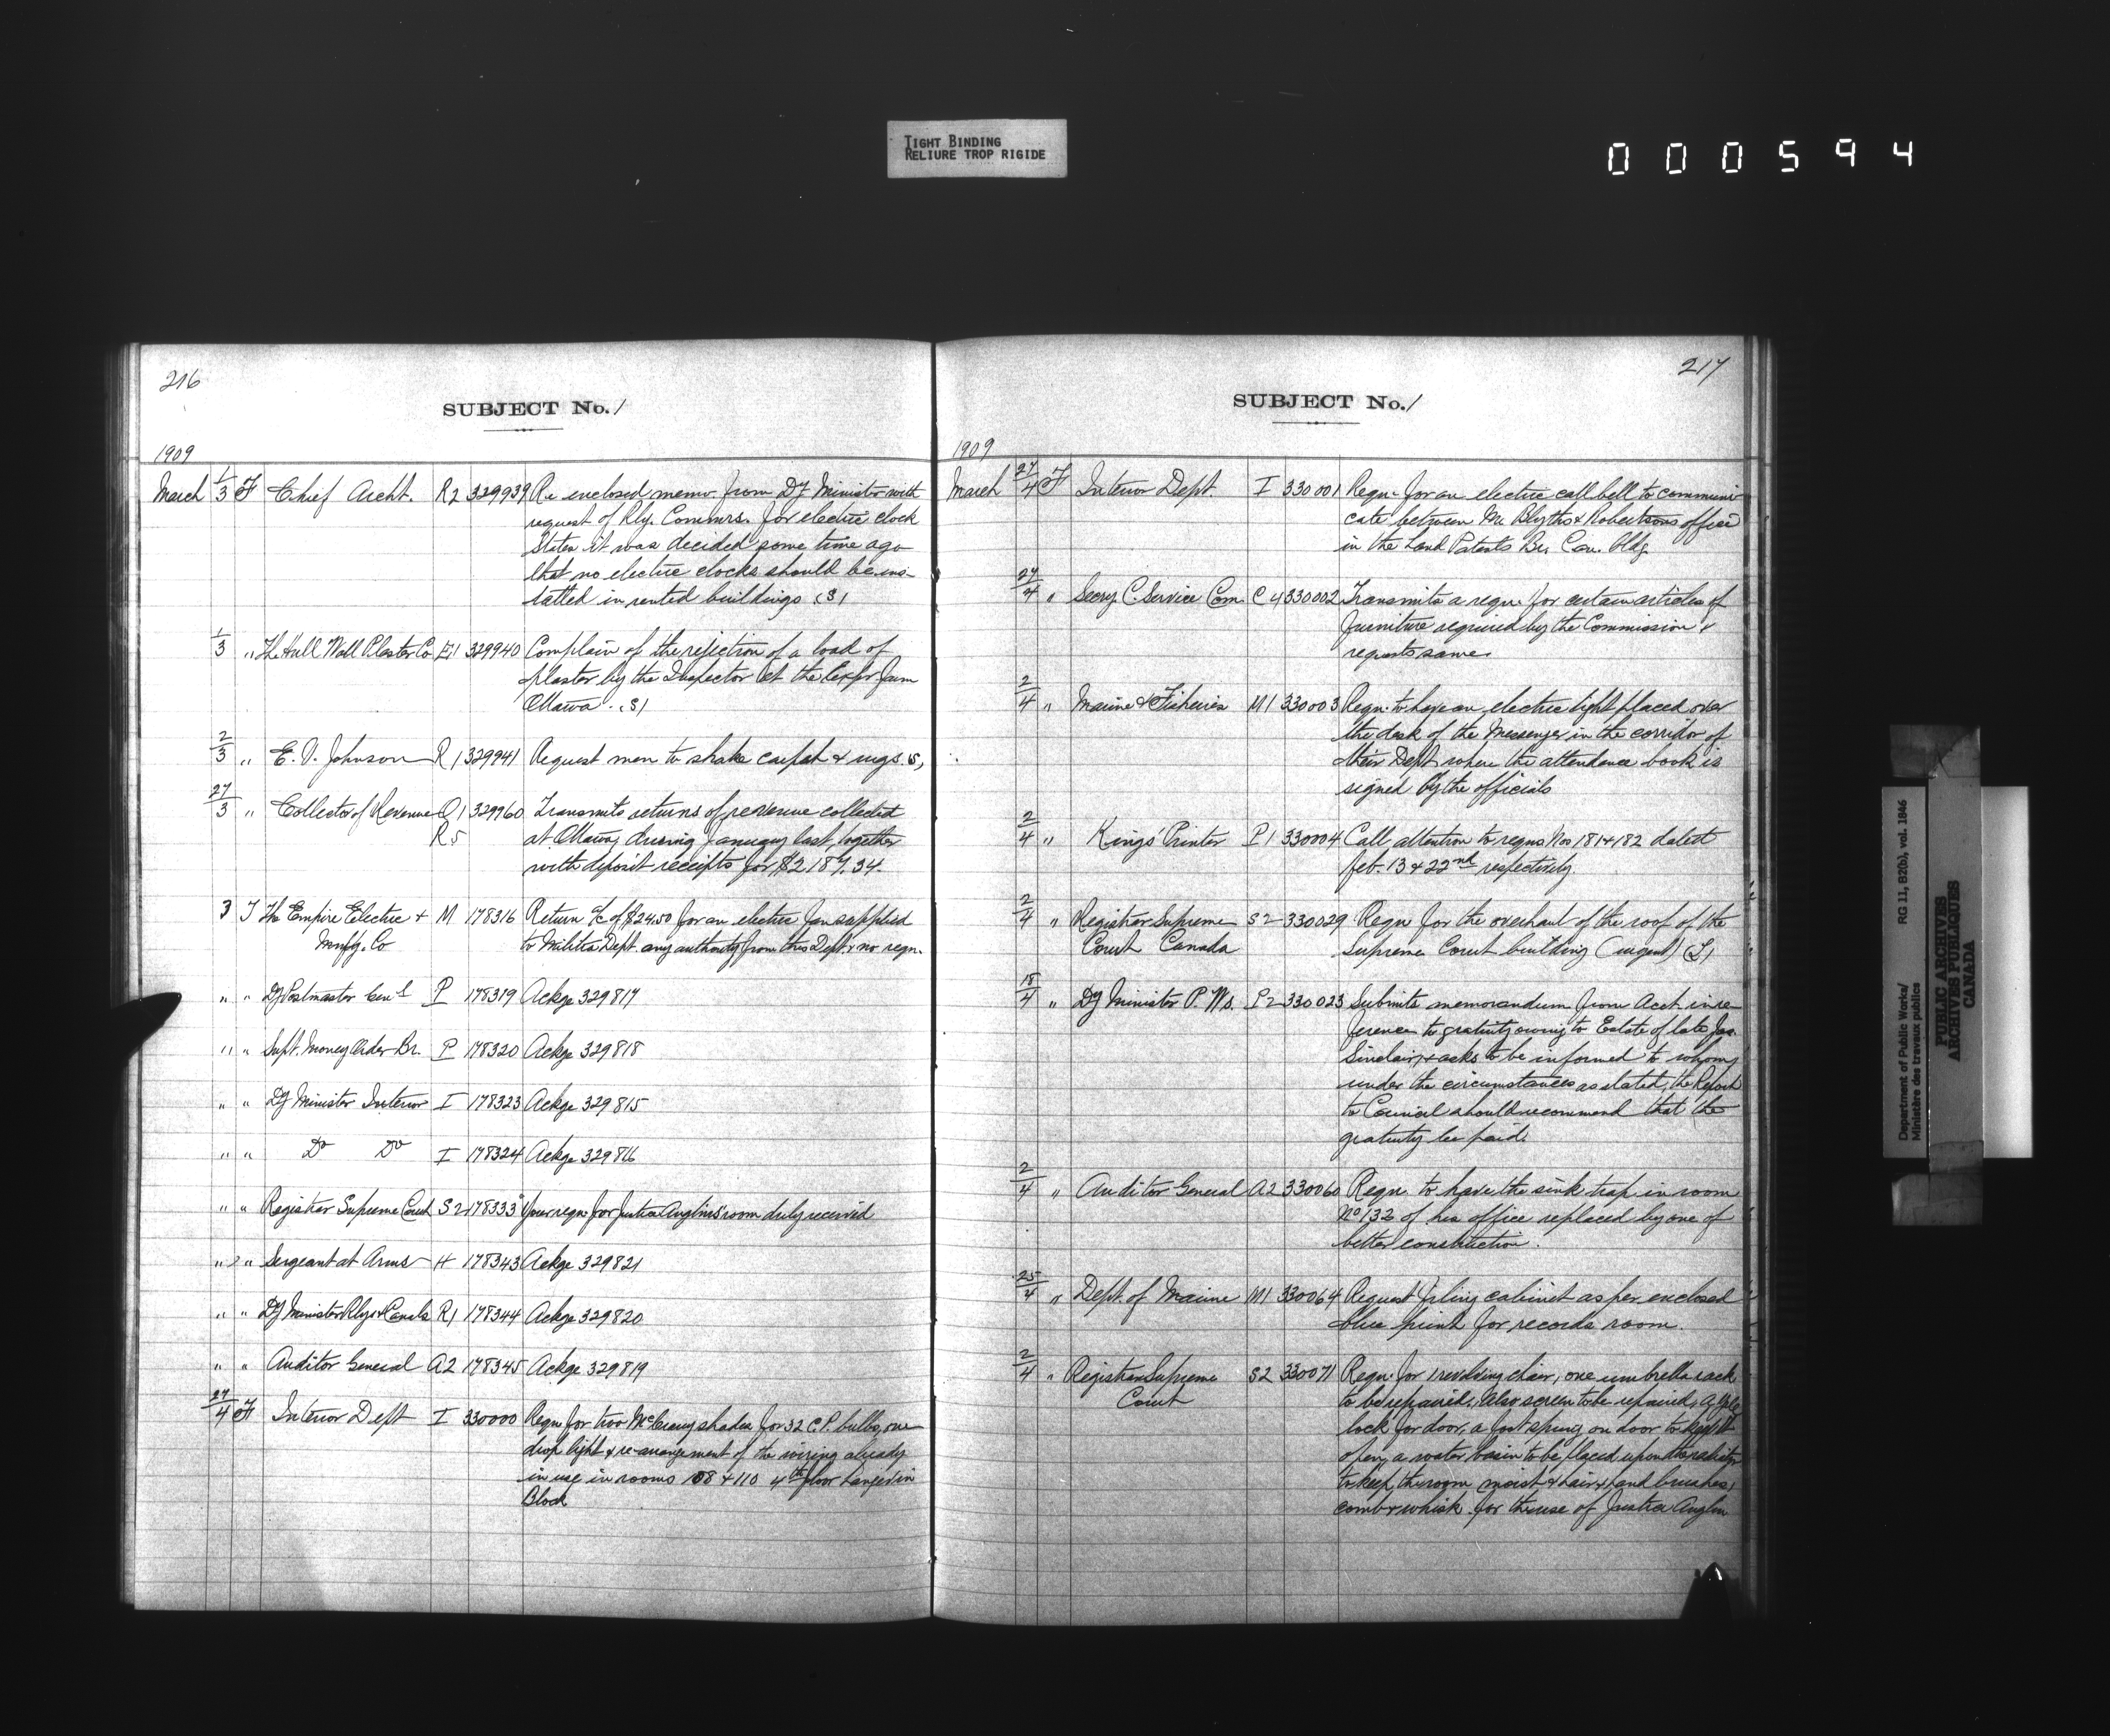 TIGHT BINDING
RELIURE TROP RIGIDE
000594
216
SUBJECT No. 1
1909
March 1/3 F Chief Archt. R2 329939 Re enclosed memo. from Dy Minister with
request of Rly. Commrs. for electric clock
States it was decided some time ago
that no electric clocks should be ins-
talled in rented buildings (S)
1/3 " The Hull Wall Plaster Co E1 329940 Complain of the rejection of a load of
plaster by the Inspector at the Exp. Farm
Ottawa. (S)
2/3 " E. V. Johnson R1 329941 Request men to shake carpet & rugs. (S)
27/3 " Collector of Revenue O1 329960 Transmits returns of revenue collected
R5 at Ottawa, during January last, together
with deposit receipts for $2187.34.
3 T The Empire Electric & M 178316 Return a/c of $24.50 for an electric fan supplied
Mnfg. Co to Militia Dept. any authority from this Dept. & no reqn.
" " Dy Postmaster Genl P 178319 Ackge 329817
" " Supt. Money Order Br. P 178320 Ackge 329818
" " Dy Minister Interior I 178323 Ackge 329815
" " Do Do I 178324 Ackge 329816
" " Registrar Supreme Court S2 178333 Your reqn. for Justice Anglin's room duly received
" " Sergeant at Arms H 178343 Ackge 329821
" " Dy Minister Rlys & Canals R1 178344 Ackge 329820
" " Auditor General A2 178345 Ackge 329819
27/4 F Interior Dept I 330000 Reqn for two McCreary shades for 32 C.P. bulbs, one
drop light & re-arrangement of the wiring already
in use in rooms 108 & 110 4th floor Langevin
Block
217
SUBJECT No. 1
1909
March 27/4 F Interior Dept. I 330001 Reqn. for an electric call bell to communi-
cate between Mr Blyths & Robertsons office
in the Land Patents Br. Can. bldg.
27/4 " Secry C. Service Com. C4 330002 Transmits a reqn. for certain articles of
furniture required by the Commission &
requests same.
2/4 " Marine & Fisheries M1 330003 Reqn. to have an electric light placed over
the desk of the Messenger in the corridor of
their Dept where the attendance book is
signed by the officials
2/4 " Kings' Printer P1 330004 Call attention to reqns Nos 181 & 182 dated
Feb. 13 & 22nd respectively.
2/4 " Registrar Supreme S2 330029 Reqn for the overhaul of the roof of the
Court Canada Supreme Court building (urgent) (L)
18/4 " Dy Minister P. Ws. P2 330023 Submits memorandum from Acct. in re-
ference to gratuity owing to Estate of late Jas.
Sinclair, & asks to be informed to whom,
under the circumstances as stated, the Report
to Council should recommend that the
gratuity be paid.
2/4 " Auditor General A2 330060 Reqn. to have the sink trap in room
No 132 of his office replaced by one of
better construction.
25/4 " Dept. of Marine M1 330064 Request filing cabinet as per enclosed
blue print for records room.
2/4 " Registrar Supreme S2 330071 Reqn. for 1 revolving chair, one umbrella rack
Court to be repaired, also screen to be repaired, a Yale
lock for door, a foot spring on door to keep it
open, a water basin to be placed upon the radiator
to keep the room moist & hair & hand brushes,
comb & whisk for the use of Justice Anglin
Department of Public Works/ RG 11, B2(b), vol. 1846
Ministère des travaux publics
PUBLIC ARCHIVES
ARCHIVES PUBLIQUES
CANADA